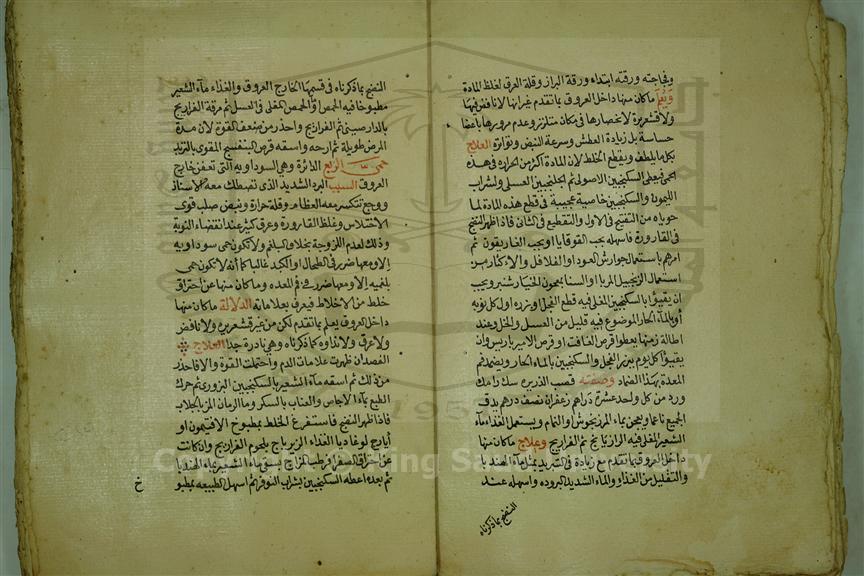 وفجاجته ورقته ابتداء ورقة البراز وقلة العرق لغلظ المادة
ويعلم ماكان منها داخل العروق بماتقدم غيرانها لانافض فيها
ولاقشعريرة لانحصارها فى مكان متلزز وعدم مرورها باعضا
حساسة بل زيادة العطش وسرعة النبض وتواتره العلاج
بكل مايلطف ويقطع الخلط لان المادة اكثر من الحرارة فى هذه
الحمى فيعطى السكنجبين الاصولى ثم الجلنجبين العسلى ولشراب
الليمون والسكنجبين خاصية عجيبة فى قطع هذه المادة لما
حوياه من التفتيح فى الاول والتقطيع فى الثانى فاذا ظهر النضج
فى القارورة فاسهله بحب القوقايا اوبحب الغاريقون ثم
امرهم باستعمال جوارش العود او الفلافل والاكثار من
استعمال الزنجبيل المربا او السنا بمعجون الخيارشنبر ويجب
ان يتقيؤا بالسكنجبين المغلى فيه قطع الفجل وبزره اول كل نوبه
أوبالمآء الحار الموضوع فيه قليل من العسل والخل وعند
اطالة زمنها يعطوا قرص الغافت او قرص الاميرباريس وان
يتقيؤا كل يوم ببزر الفجل والسكنجبين بالماء الحار ويضمد فم
المعدة بهذا الضماد وصفته قصب الذريره سك رامك
ورد من كل واحد عشرة دراهم زعفران نصف درهم يدق
الجميع ناعما ويعجن بماء المرزنجوش او النمام ويستعمل الغذاء مآء
الشعير المغلى فيه الرازيانج ثم الفراريج وعلاج ماكان منها
داخل العروق بماتقدم مع زيادة فى التبريد بمثل مآء الهندبا
والتقليل من الغذاء والماء الشديد البروده واسهله عند
النضج بماذكرناه
النضج بماذكرناه فى قسيمها الخارج العروق والغذاء مآء الشعير
مطبوخا فيه الحمص او الحمص المغلى فى العسل ثم مرقة الفراريج
بالدارصينى ثم الفراريج واحذر من ضعف القوة لان مدة
المرض طويلة ثم ارحه واسقه قرص البنفسج المقوى بالتربد
حمى الربع الدائرة وهى السوداويه التى تعفن خارج
العروق السبب البرد الشديد الذى تصطك معه الاسنان
ووجع تتكسر معه العظام وقلة حرارة ونبض صلب قوى
الاختلاس وغلظ القارورة وعرق كثير عند انقضاء النوبة
وذلك لعدم اللزوجة بخلاف البلغم ولاتكون حمى سوداويه
الاومعها ضرر فى الطحال او الكبد غالبا كما أنه لاتكون حمى
بلغميه الاومعها ضرر فى فم المعده وماكان منها عن احتراق
خلط من الاخلاط فيعرف بعلاماته الدلالة ماكان منها
داخل العروق يعلم بماتقدم لكن من غير قشعريره ولانافض
ولاعرق ولانداوه كما ذكرناه وهى نادرة جدا العلاج
الفصد ان ظهرت علامات الدم واحتملت القوة والافاحذر
من ذلك ثم اسقه مآء الشعير بالسكنجبين البزورى ثم حرك
الطبع بمآء الاجاص والعناب بالسكر وما الرمان المز بالجلاب
فاذا ظهر النضج فاستفرغ الخلط بمطبوخ الافتيمون او
أيارج لوغاديا الغذاء الزيرباج بلحوم الفراريج وان كانت
عن احتراق الصفرا فرطب المزاج بسقى مآء الشعير بماء الهندبا
ثم بعده اعطه السكنجبين بشراب النوفر ثم اسهل الطبيعه بمطبو
خ